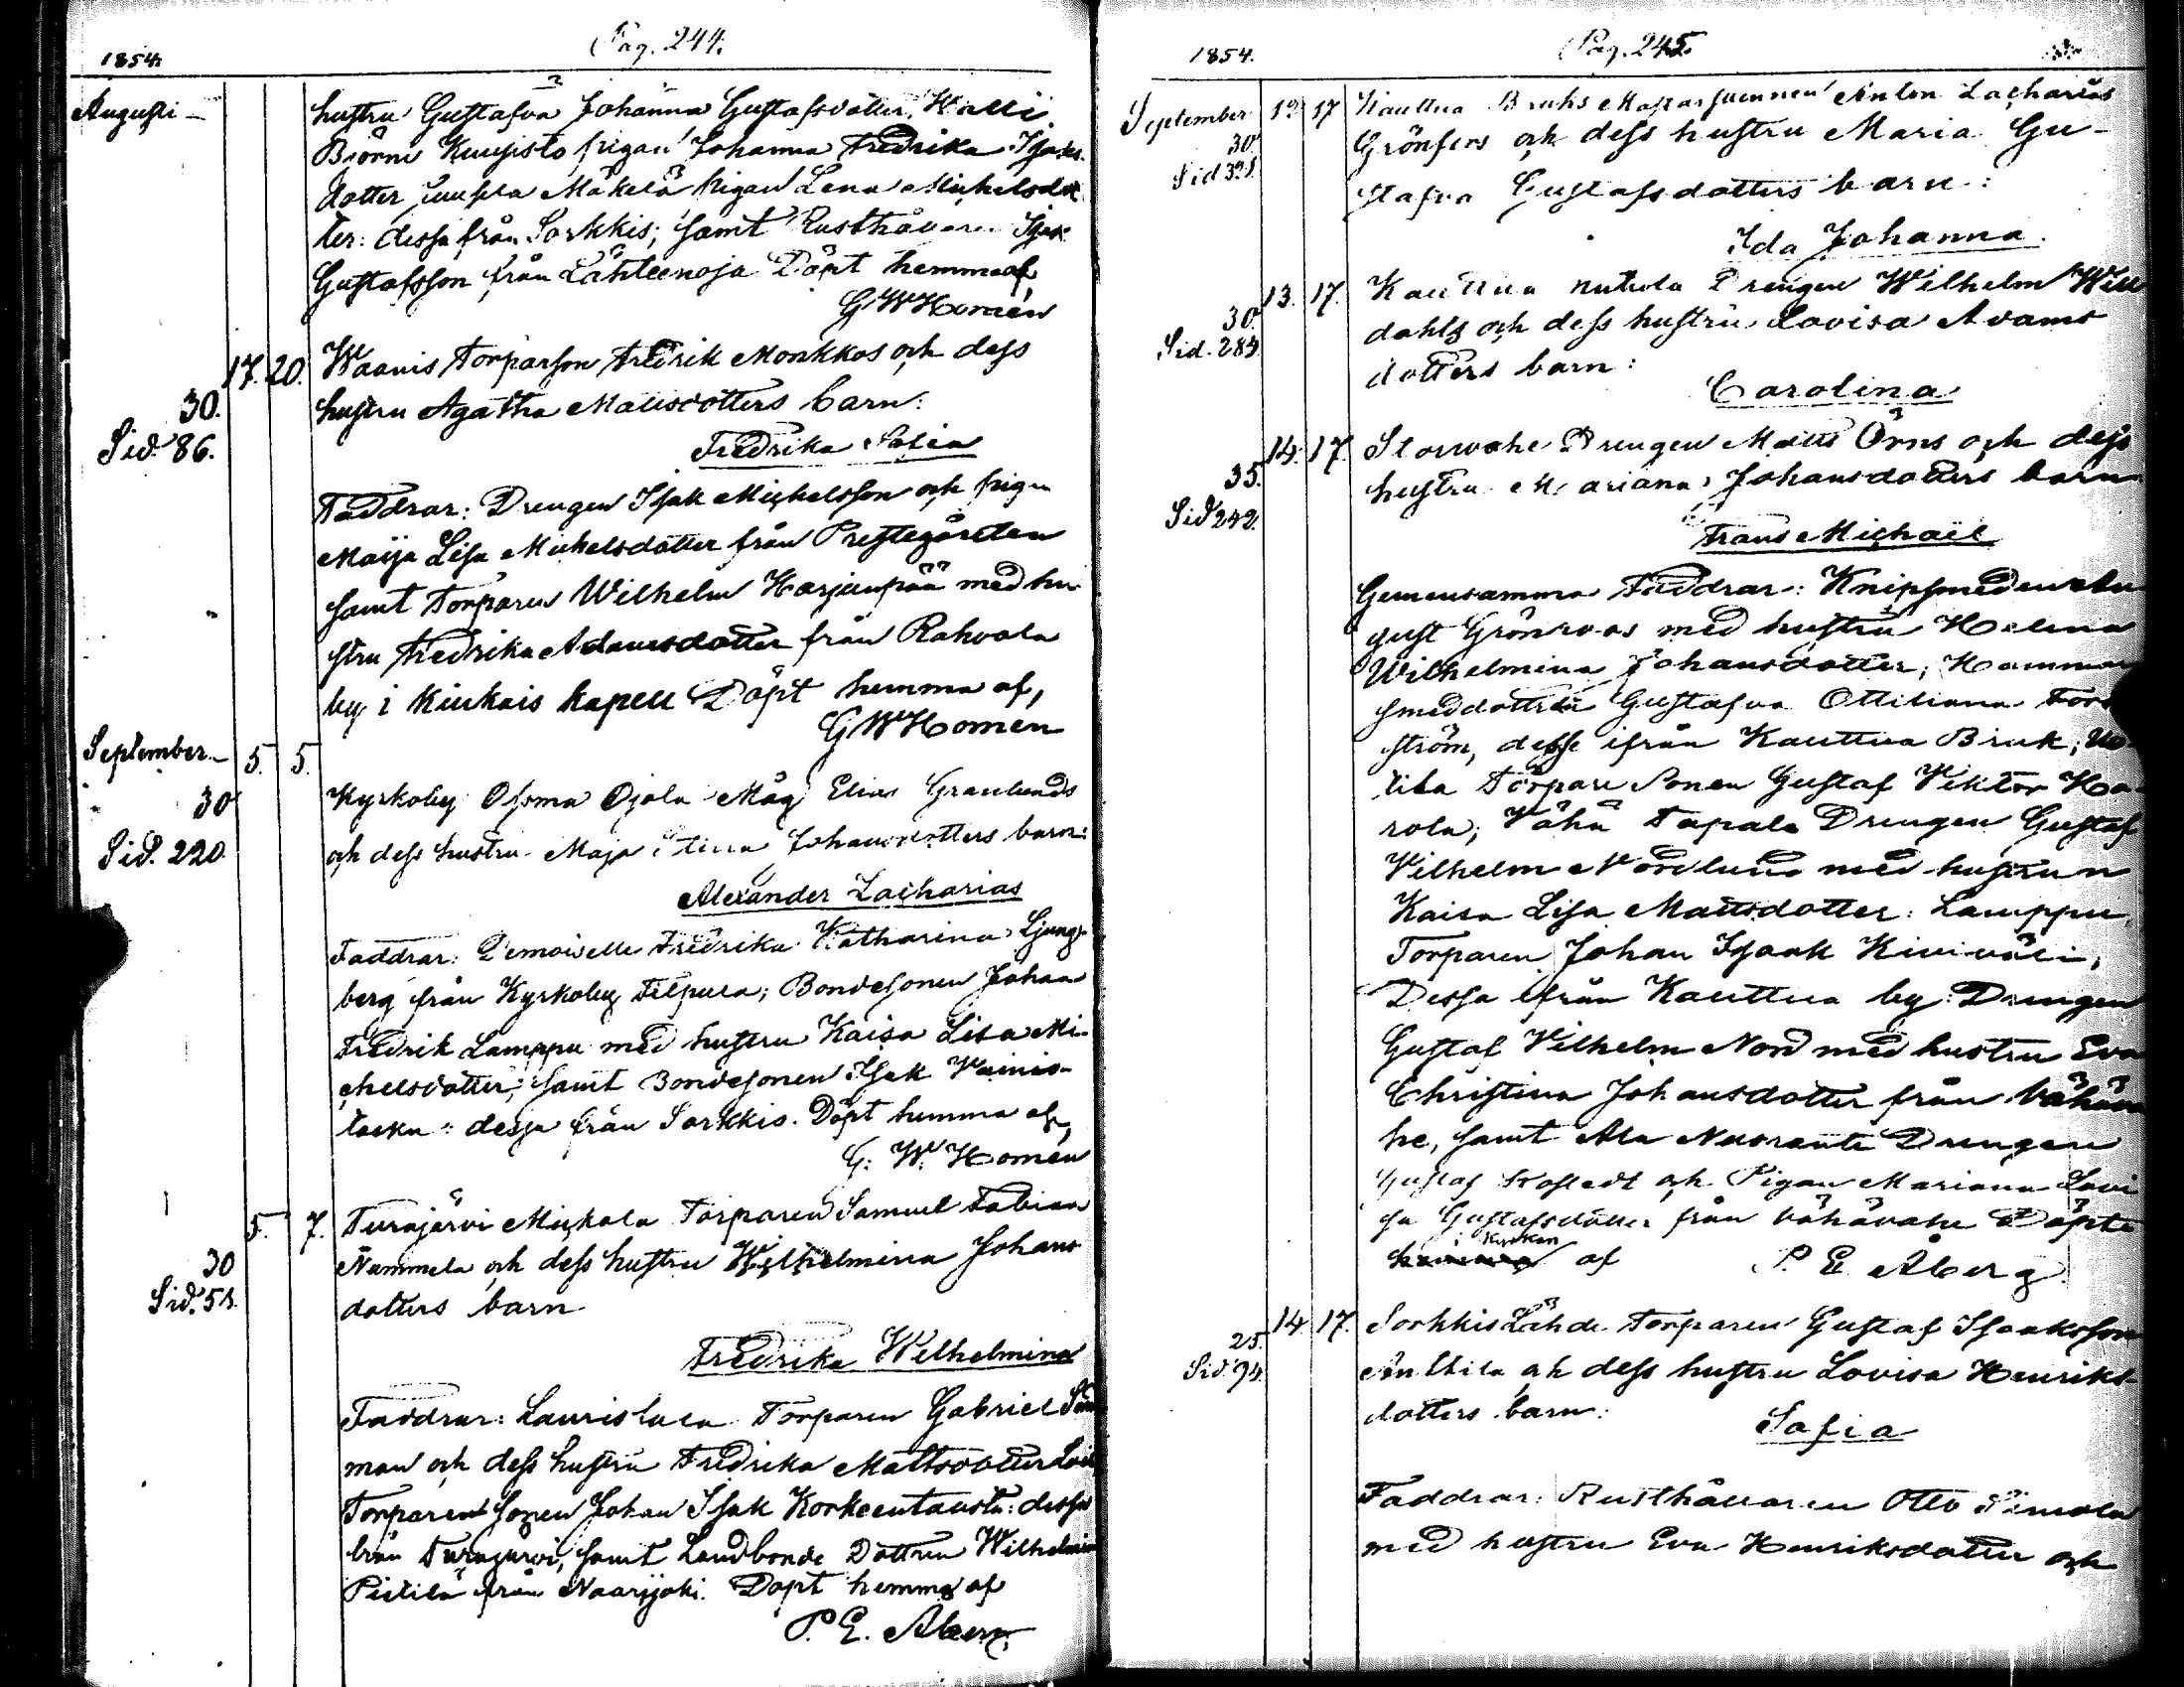 1854.
Pag. 244.
Augusti
hustru Gustafva Johanna Gustafsdotter, Halli
Björni Kuujisto pigan Johanna Fredrika Isaks-
dotter Juupla Mäkelä pigan Lena Michelsdot
ter: dessa från Sorkkis; samt Rusthållaren Isak
Gustafsson från Lähteenoja Döpt hemma af,
G W Homén
17. 20. Waanis Torparson Fredrik Monkkos och dess
30.
hustru Agatha Mattsdotters barn:
Sid. 86.
Fredrika Sofia
Faddrar: Drengen Isak Michelsson och pigan
Maija Lisa Michelsdotter från Prestegården
samt Torparen Wilhelm Harjunpää med hu-
stru Fredrika Adamsdotter från Rahvola
by i Kiukais kapell Döpt hemma af,
G W Homén
September 5. 5.
30
Kyrkoby Ojsma Ojala Måg Elias Granlunds
och dess hustru Maja Stina Johansdotters barn:
Sid. 220.
Alexander Zacharias
Faddrar: Demoiselle Fredrika Katharina Ljung-
berg från Kyrkoby Filpula; Bondesonen Johan
Fredrik Lamppu med hustru Kaisa Lisa Mi-
chelsdotter; samt Bondesonen Isak Wainio-
taeku: dessa från Sorkkis. Döpt hemma af,
G. W. Homén
5. 7. Turajärvi Mickola Torparen Samuel Fabian
30
Nummela och dess hustru Wilhelmina Johans
Sid. 58.
dotters barn
Fredrika Wilhelmina
Faddrar: Laurislaca Torparen Gabriel
man och dess hustru Fredrika Mattsdotter
Torparens sonen Johan Isak Korkeentausta: dessa
från Turajärvi, samt Landbonde Dottren Wilhelmin
Pietilä från Naarjjoki. Döpt hemma af
P. E. Åberg.
1854.
Pag. 245.
September 17 Kauttua Bruks Mästarsvennen Anton Zacharias
30.
Grönfors och dess hustru Maria Gu-
Sid 321.
stafva Gustafsdotters barn:
Ida Johanna.
13. 17. Kauttua Drengen Wilhelm Will
30.
dahls och dess hustru Lovisa Adams
Sid. 284.
dotters barn:
Carolina
14. 17. Storvahe Drengen Matts Örns och dess
35.
hustru Mariana Johansdotters barn
Sid 242.
Frans Michaël
Gemensamma Faddrar: Knipsmeden Au
gust Grönroos med hustru Helena
Wilhelmina Johansdotter; Hammar
smeddottren Gustafva Ottiliana Fors
ström, desse ifrån Kauttua Bruk; Uo-
tila Torpare Sonen Gustaf Viktor Ha-
rola; Vähä Tapala Drengen Gustaf
Vilhelm Nordlund med hustrun
Kaisa Lisa Mattsdotter: Lamppu,
Torparen Johan Isaak Kiviväli,
Dessa från Kauttua by: Drengen
Gustaf Vilhelm Nord med hustru Eva
Christina Johansdotter från Vähäva
he, samt Ala Neuvante Drengen
Gustaf Rostedt och Pigan Mariana Lovi
sa Gustafsdotter från Vähävahe Döpte
i kyrkan af
P. E. Åberg
14. 17. Sorkkis Lähde Torparen Gustaf Isaaksson
25.
Anttila och dess hustru Lovisa Henriks-
Sid. 94.
dotters barn:
Sofia
Faddrar: Rusthållaren Otto Simola
med hustru Eva Henriksdotter och